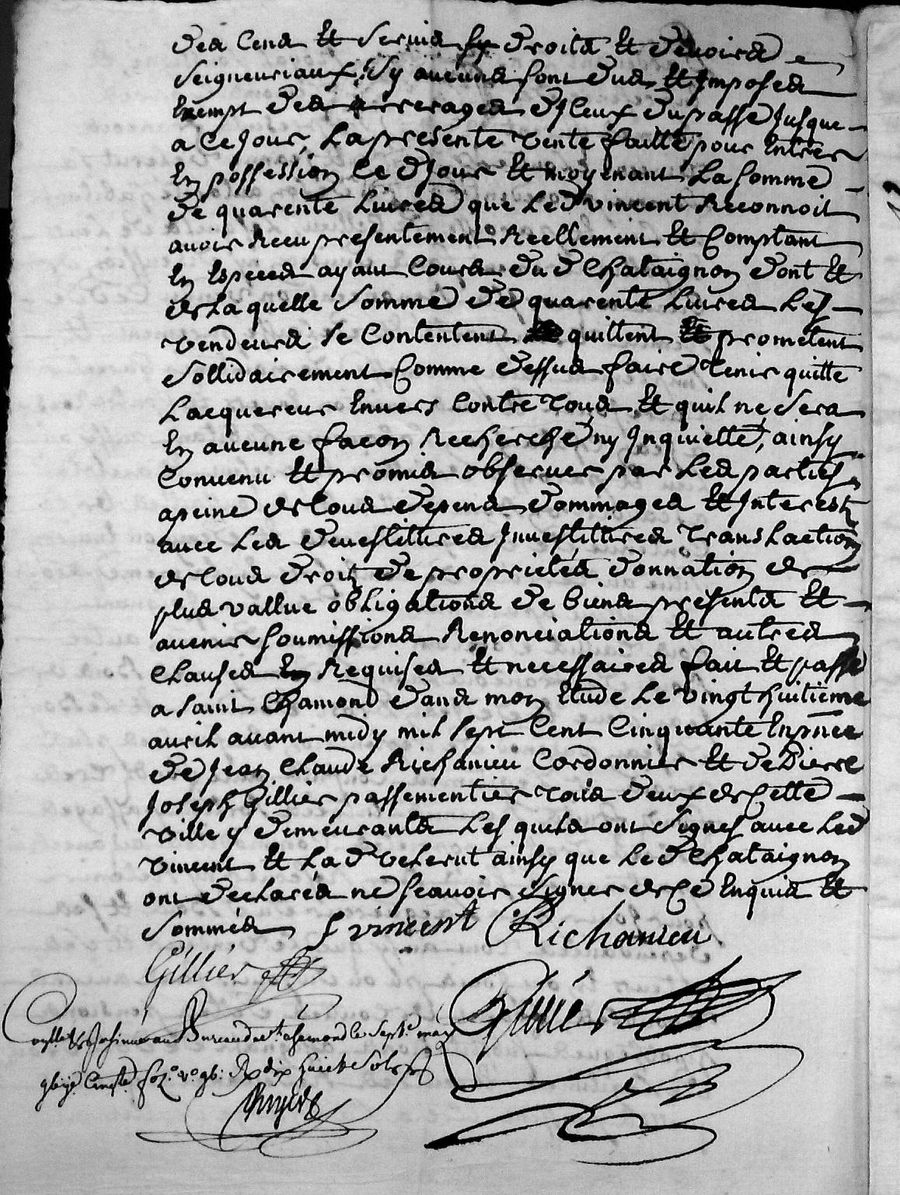 des Cens et servis et droits et devoirs
seigneuriaux sy aucuns sont dus et Imposes
Exempt des arrerages diceux dupassé Jusque
a ce Jour, La presente vente faitte pour Entrer
En possession ce dJour Et moyenant La somme
de quarente Livres que Le d vincent Reconnoit
avoir Receu presentement Reellement Et Comptant
En Especes ayant Cours du d Chataignon dont Et
de La quelle somme de quarente Livres Les
vendeurs se Contentent quittent et prometent
sollidairement Comme dessus faire Tenir quitte
Lacquereur Envers Contre Tous Et quil ne sera
En aucune facon Recherché ny Inquietté, ainsy
Convenu Et promis observer par Les parties
apeine de tous depens dommages Et Interests
avec Les devestitures Investitures Translaction
de tous droits de proprietés donnation de
plus vallue obligations de biens presents Et
avenir soumissions Renonciations Et autres
Clauses En Requises Et necessaires fait Et passé
a saint Chamond dans mon Etude Le vingt huitieme
avril avant midy mil sept Cent Cinquante En pnce
de Jean Claude Richanieu Cordonnier Et de Pierre
Joseph Gillier passementier Tous deux de Cette
ville y demeurants Les quels ont signes avec Led
vincent Et La d ainsy que Le d Chataignon
ont declarés ne scavoir signer de Ce Enquis Et
sommés J vincent Richanieu
Gillier
au Bureau de St chamond le sept. may
dix huict sols